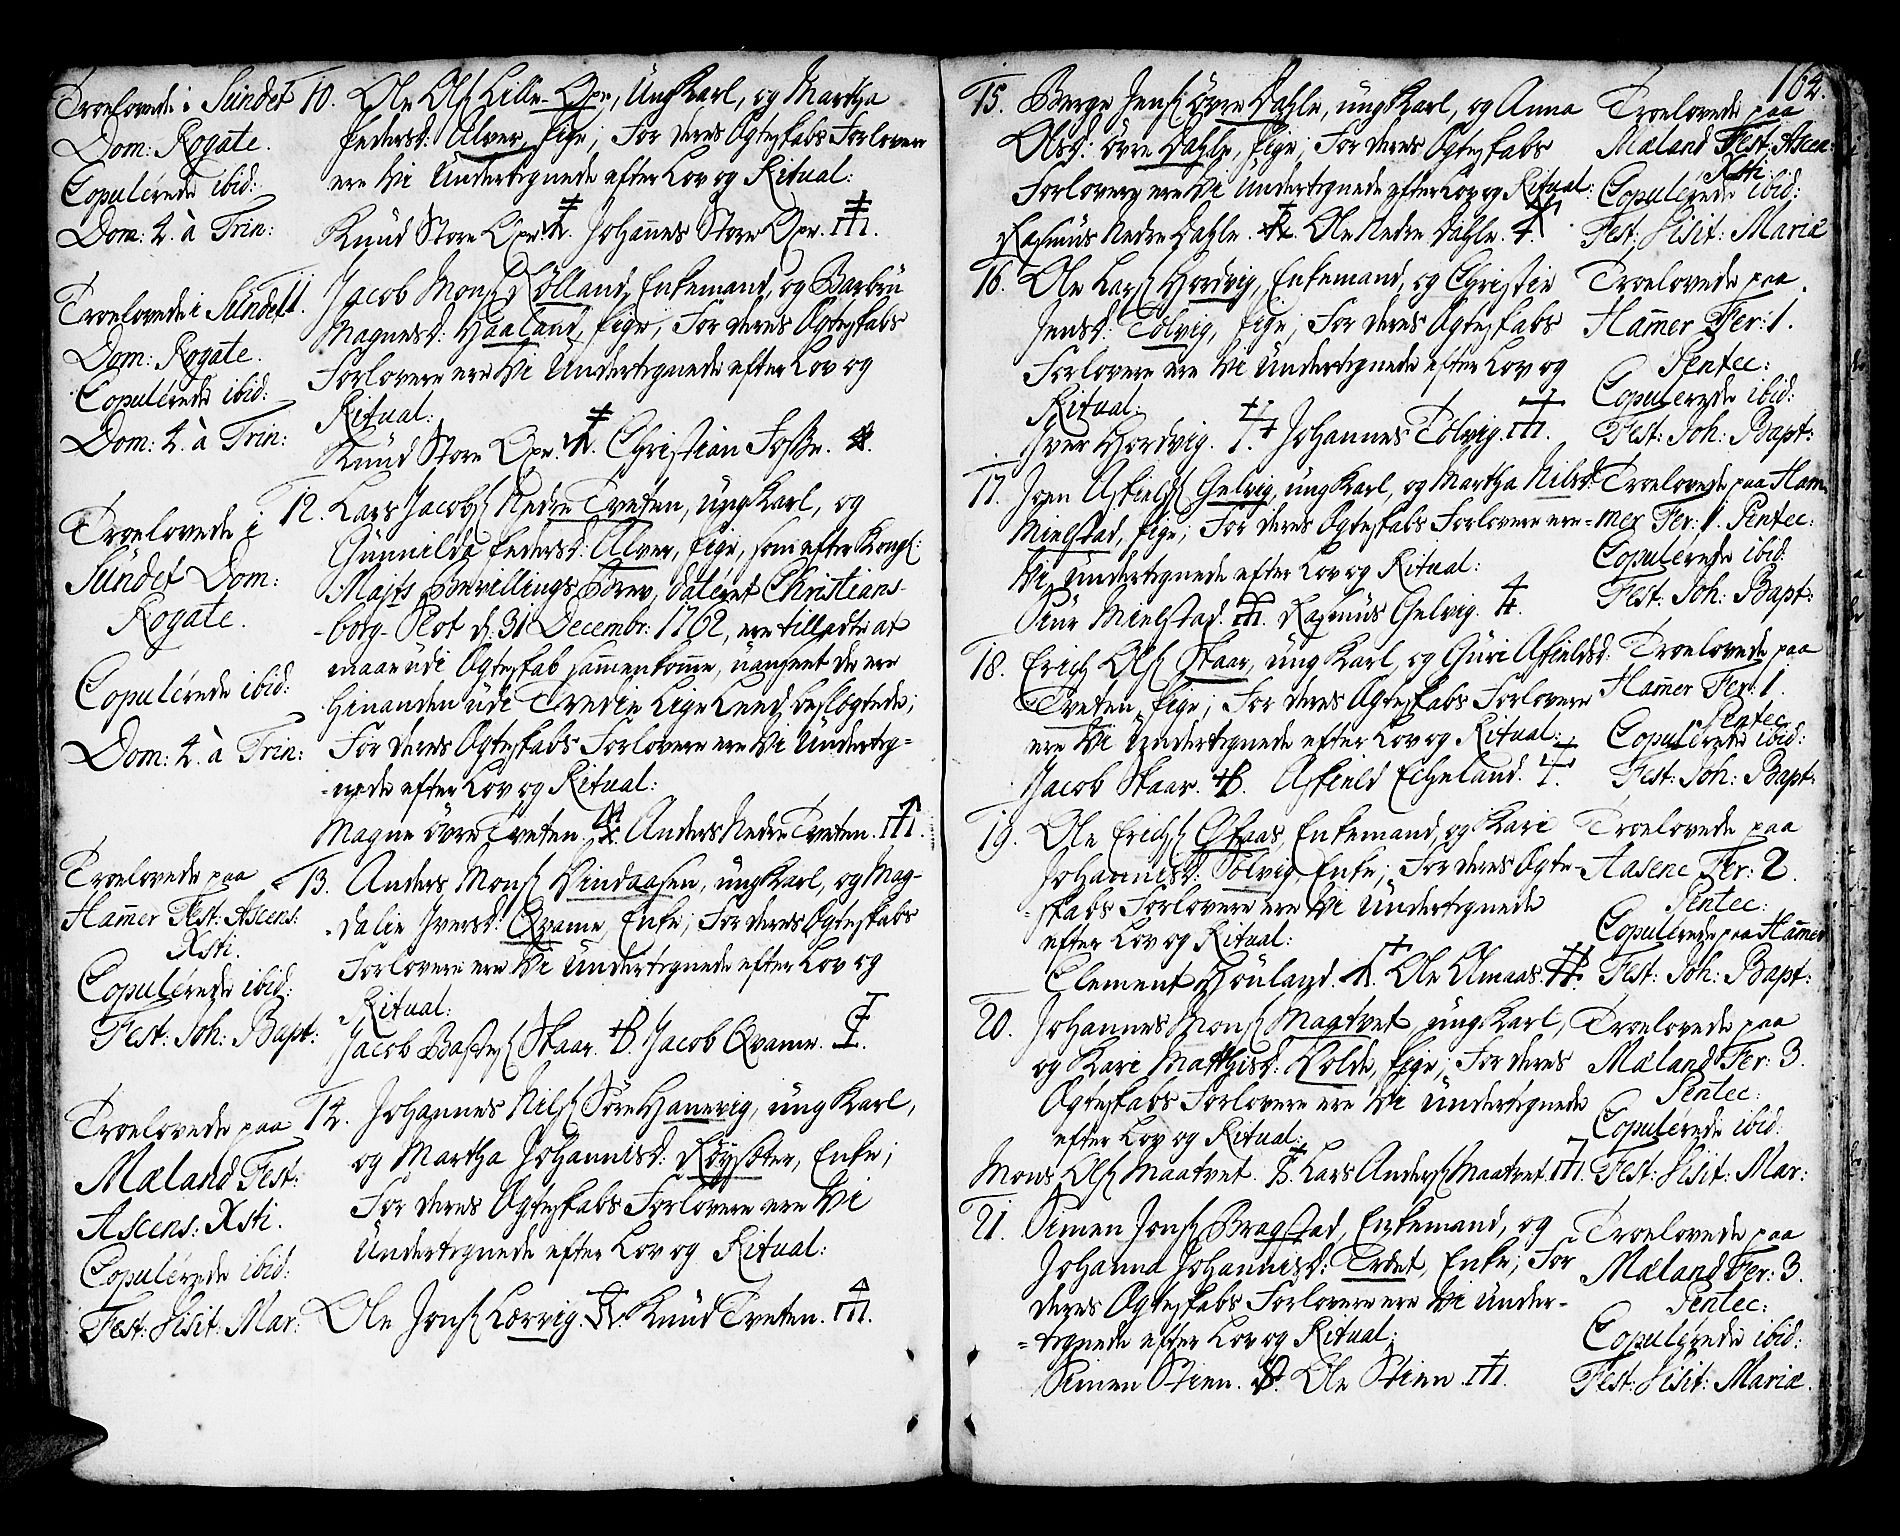 Troelovede i Sündet
Dom: Rogate.
Copulérede ibid:
Dom: 2. à Trin:
10. Ole Ols: Lille-Opn, Ung Karl, og Martha
Pedersd: Alver, Pige, For deres Ægteskabs Forlover
ere Vi Undertegnede efter Lov og Ritual:
Knud Store Opn. Johannes Store Opn.
Troelovede i Sündet
Dom: Rogate.
Copulérede ibid:
Dom: 2. à Trin:
11. Jacob Mons: Rölland, Enkemand, og Barbru
Magnesd: Haaland, Pige, For deres Ægteskabs
Forlovere ere Vi Undertegnede efter Lov og
Ritual:
Knud Store Opn. Christian Fosse.
Troelovede i
Sündet Dom:
Rogate.
Copulérede ibid:
Dom: 2. à Trin:
12. Lars Jacobs: Nedre Tveten, ung Karl, og
Gunnilda Pedersd: Alver, Pige, som efter Kongl:
Majts Bevillings Brev, dateret Christians-
-borg-Slot d: 31 Decembr: 1762, ere tilladte at
maae udi Ægteskab sammenkomme, uanseet de ere
hinanden udi Tredie Lige Leed beslægtede;
For deres Ægteskabs Forlovere ere Vi Underteg=
=nede efter Lov og Ritual:
Magne övre Tveten. Anders Nedre Tveten.
Troelovede paa
Hammer Fest: Ascens:
Xsti.
Copulérede ibid:
Fest: Joh: Bapt:
13. Anders Mons: Lindaasen, ung Karl, og Mag-
-dalie Iversd: Qvame, Enke, For deres Ægteskabs
Forlovere ere Vi Undertegnede efter Lov og
Ritual:
Jacob Skaar. Jacob Qvame.
Troelovede paa
Mæland Fest:
Ascens: Xsti.
Copulérede ibid:
Fest: Visit: Mar:
14. Johannes Nils: Söre Hanevig, ung Karl,
og Martha Johannisd: Röysæter, Enke;
For deres Ægteskabs Forlovere ere Vi
Undertegnede efter Lov og Ritual:
Ole Jons: Lærvig. Knud Tveten.
164.
15. Berge Jens: övre Dahle, ung Karl, og Anna
Olsd: övre Dahle, Pige, For deres Ægteskabs
Forlovere ere Vi Undertegnede efter Lov og Ritual:
Rasmus Nedre Dahle. Ole Nedre Dahle.
Troelovede paa
Mæland Fest: Ascen:
Xsti.
Copulérede ibid:
Fest: Visit: Mariæ
16. Ole Lars: Hordvig, Enkemand, og Christie
Jensd: Tolvig, Pige, For deres Ægteskabs
Forlovere ere Vi Undertegnede efter Lov og
Ritual:
Iver Hordvig. Johannes Tolvig.
Troelovede paa
Hammer Fer: 1.
Pentec:
Copulerede ibid:
Fest: Joh: Bapt:
17. Joen Askields: Gelvig, ung Karl, og Martha Nilsd:
Mielstad, Pige, For deres Ægteskabs Forlovere ere
Vi Undertegnede efter Lov og Ritual:
Siur Mielstad. Rasmus Gelvig.
Troelovede paa Ham-
=mer Fer: 1. Pentec:
Copulérede ibid:
Fest: Joh: Bapt:
18. Erich Ols: Skaar, ung Karl, og Guri Askieldsd:
Tveten, Pige, For deres Ægteskabs Forlovere
ere Vi Undertegnede efter Lov og Ritual:
Jacob Skaar. Askield Eicheland.
Troelovede paa
Hammer Fer: 1.
Pentec
Copulérede ibid:
Fest: Joh: Bapt:
19. Ole Erichs: Gfaas, Enkemand, og Kari
Johannisd: Solvig, Enke, For deres Ægte-
-skabs Forlovere ere Vi Undertegnede
efter Lov og Ritual:
Clement Houland. Ole Almaas.
Troelovede paa
Aasene Fer: 2.
Pentec:
Copulérede paa Hammer
Fest: Joh: Bapt:
20. Johannes Mons: Maatvet, ung Karl,
og Kari Matthisd: Colde, Pige, For deres
Ægteskabs Forlovere ere Vi Undertegnede
efter Lov og Ritual:
Mons Ols: Maatvet. Lars Anders: Maatvet.
Troelovede paa
Mæland Fer: 3.
Pentec:
Copulérede ibid:
Fest: Visit: Mar:
21. Simen Jons: Bragstad, Enkemand, og
Johanna Johannisd: Trdet, Enke, For
deres Ægteskabs Forlovere ere Vi Under-
=tegnede efter Lov og Ritual:
Simen Stien. Ole Stien.
Troelovede paa
Mæland Fer: 3.
Pentec:
Copulérede ibid:
Fest: Visit: Mariæ.